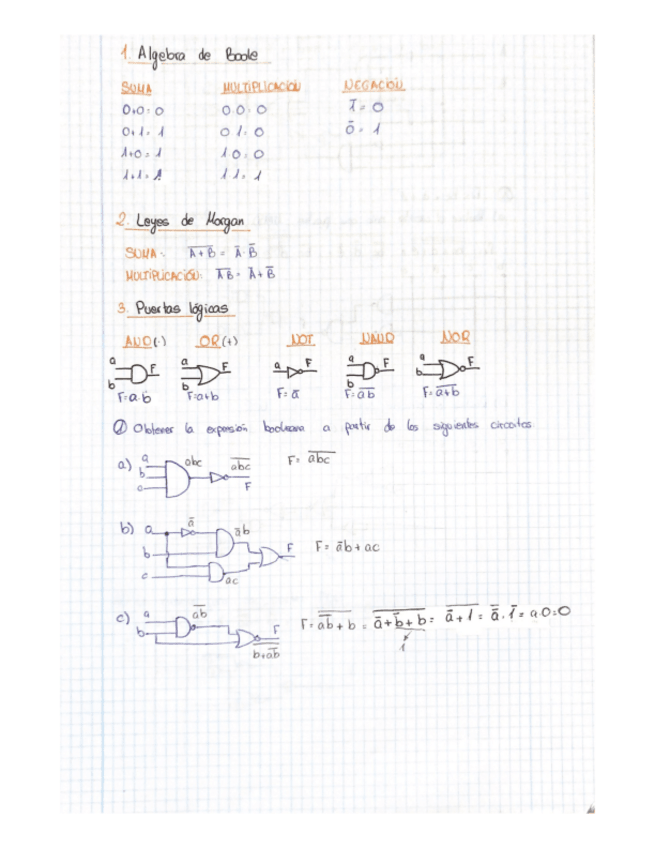 1. Algebra de Boole
SUMA MULTIPLICACIÓN NEGACIÓN
0+0=0 0·0=0 1̅=0
0+1=1 0·1=0 0̅=1
1+0=1 1·0=0
1+1=1 1·1=1
2. Leyes de Morgan
SUMA: \overline{A+B} = A̅·B̅
MULTIPLICACIÓN: \overline{AB} = A̅+B̅
3. Puertas lógicas
AND(·) OR(+) NOT NAND NOR
a b F a b F a F a b F a b F
F=a·b F=a+b F=a̅ F=\overline{ab} F=\overline{a+b}
① Obtener la expresión booleana a partir de los siguientes circuitos
a) a b c abc \overline{abc} F F=\overline{abc}
b) a b c a̅ a̅b ac F F=a̅b+ac
c) a b \overline{ab} F \overline{b+\overline{ab}} F=\overline{\overline{ab}+b} = \overline{a̅+b̅+b} = \overline{a̅+1} = \overline{a̅}·1̅ = a·0=0
1